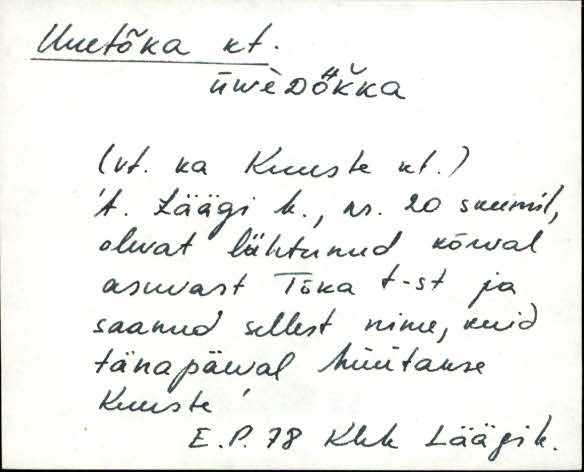 Uuetõka kt.
üwèDö̋k̆ka
(vt. ka Kuuste kt.)
't. Läägi k., nr. 20 skeemil,
olevat lähtunud kõrval
asuvast Tõka t-st ja
saanud sellest nime, kuid
tänapäeval hüütakse
Kuuste'
E.P. 78 Khk Läägi k.